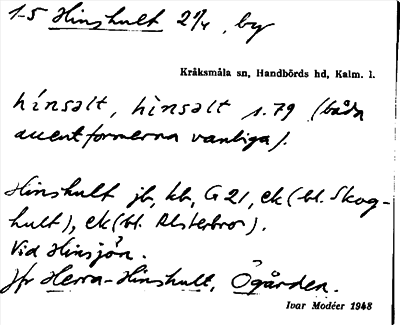 1-5 Hinshult 2 1/4, by
Kråksmåla sn, Handbörds hd, Kalm. l.
hínsalt, hìnsalt s. 79 (båda
accentformerna vanliga).
Hinshult jb, kb, G 21, ek (bl. Skog-
hult), ek (bl. Alsterbror).
Vid Hinsjön.
Jfr Herra-Hinshult, Ögården.
Ivar Modéer 1948